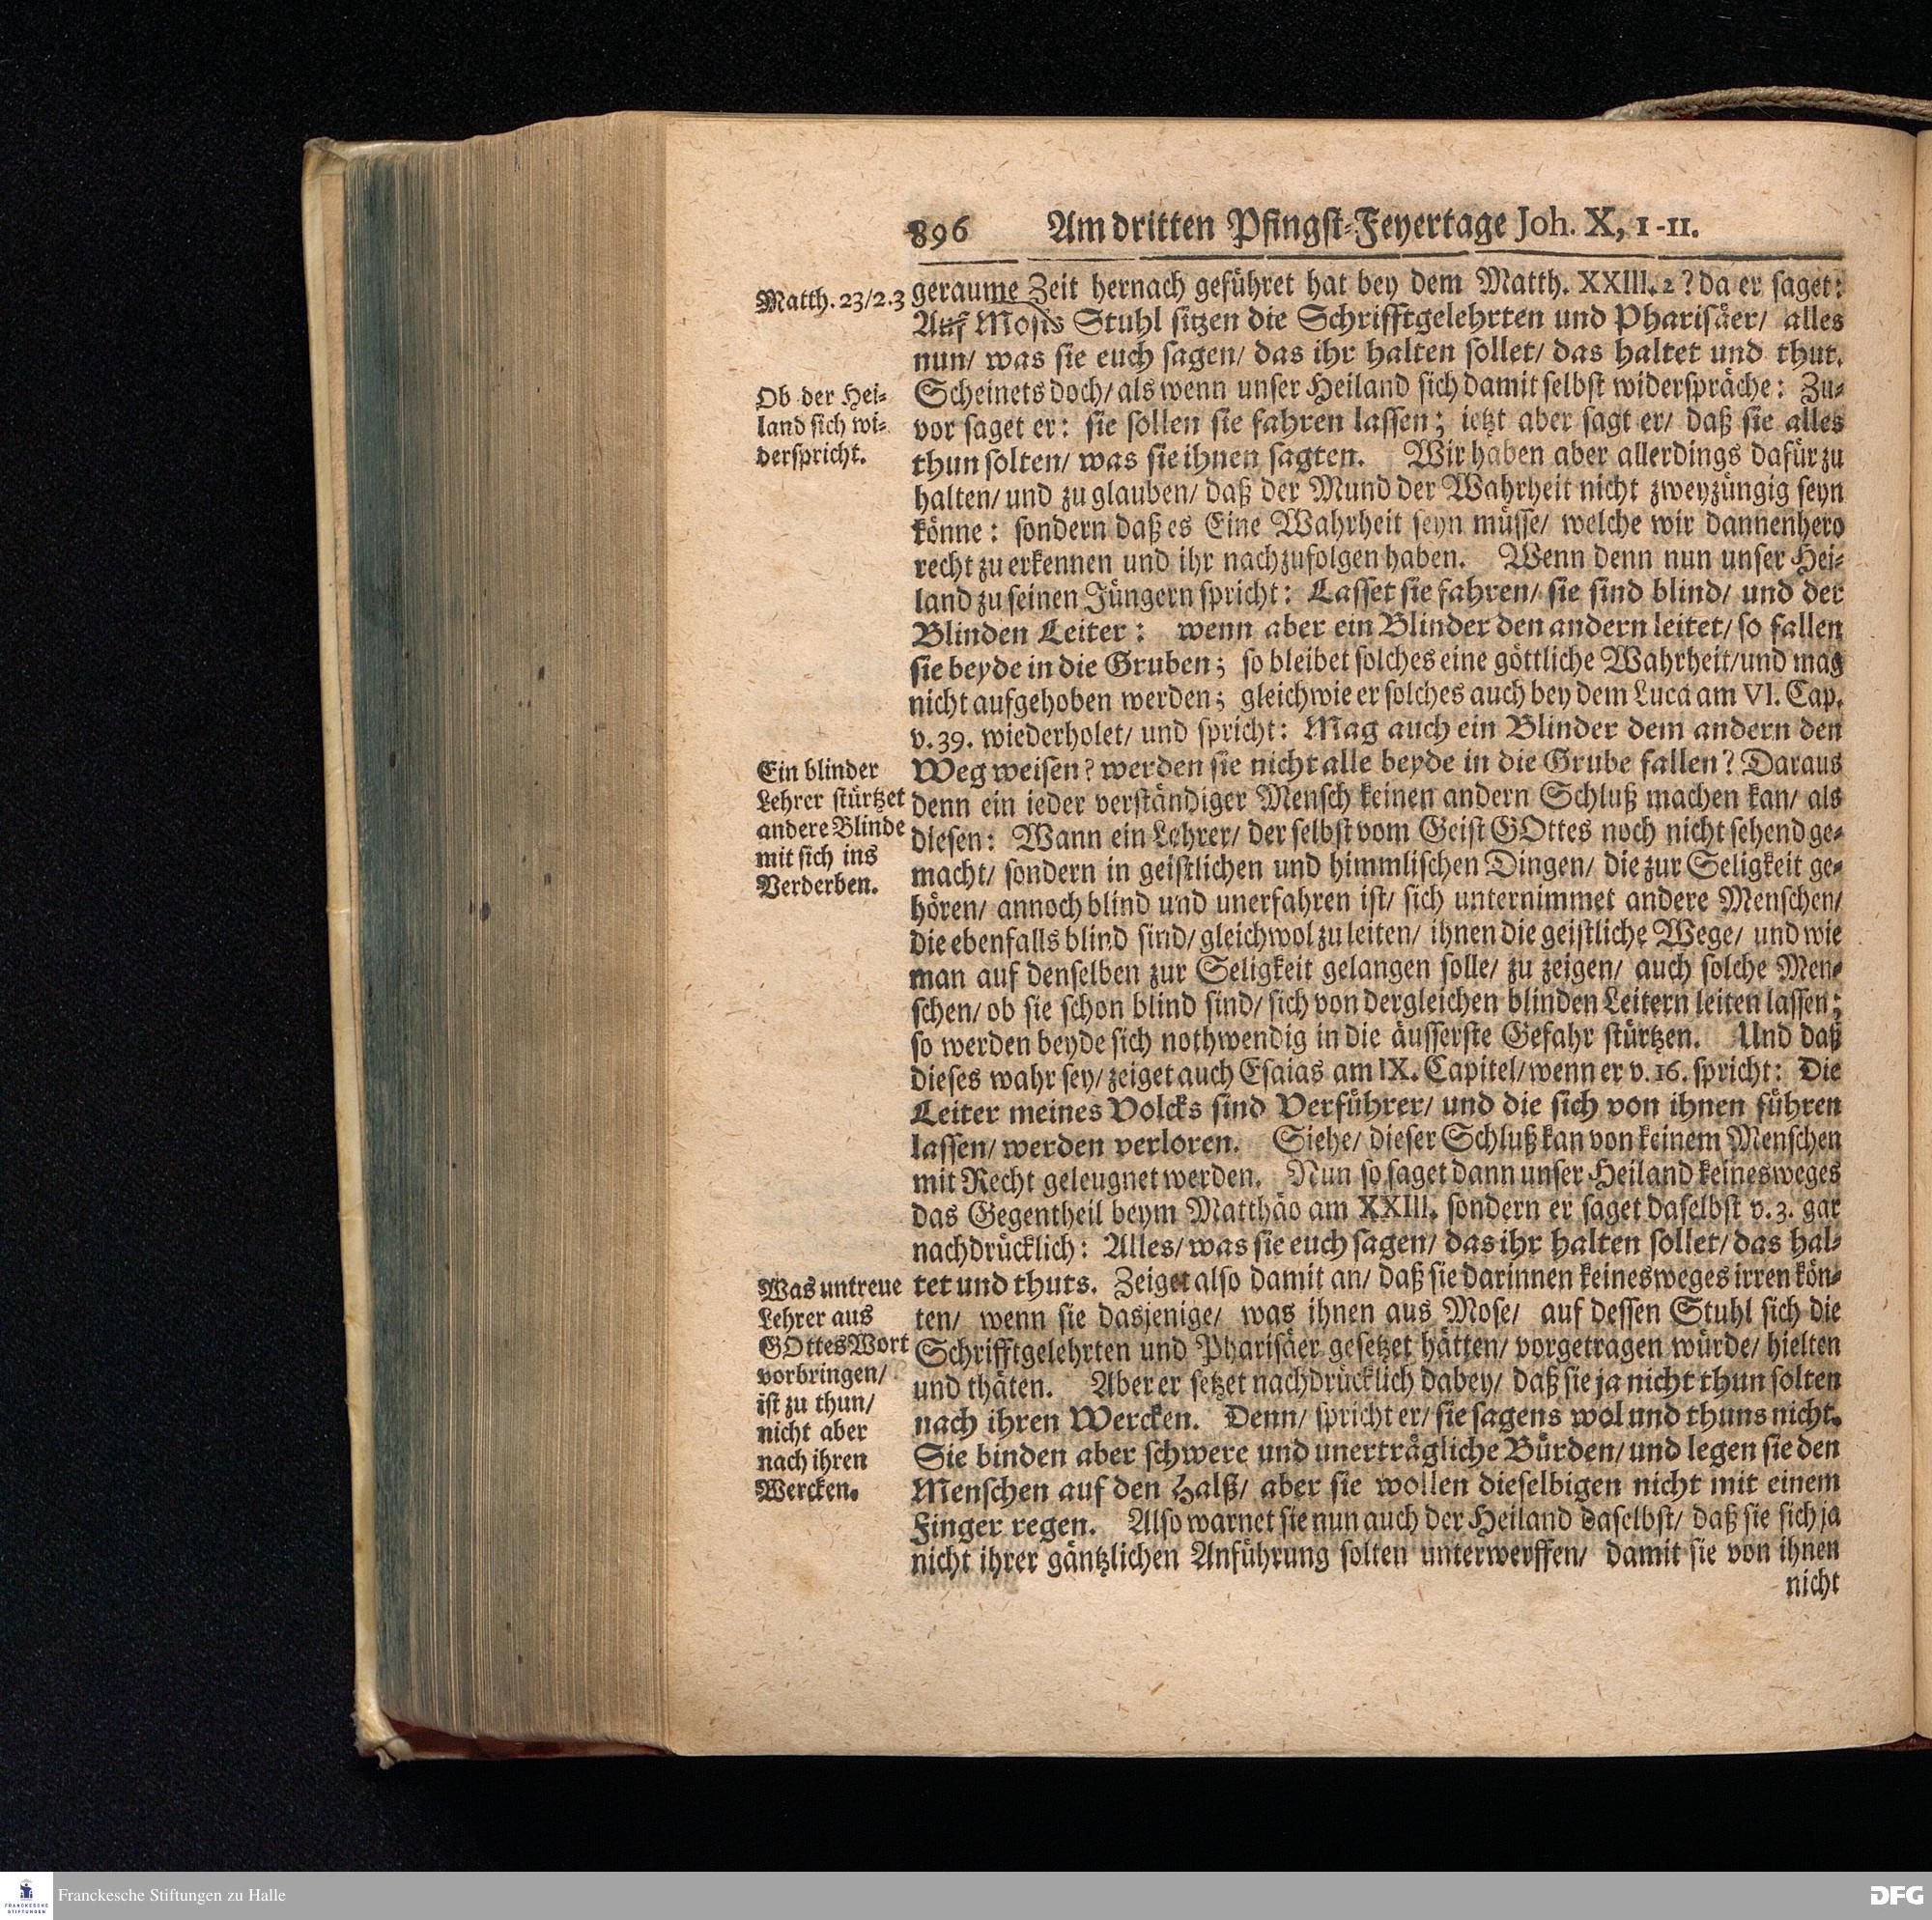 896 Am dritten Pfingst-Feyertage Joh. X, 1-11.
Matth. 23/2.3
geraume Zeit hernach geführet hat bey dem Matth. XXIII. 2? da er saget:
Auf Mosis Stuhl sitzen die Schrifftgelehrten und Pharisäer/ alles
nun/ was sie euch sagen/ das ihr halten sollet/ das haltet und thut.
Ob der Hei-
land sich wi-
derspricht.
Scheinets doch/ als wenn unser Heiland sich damit selbst widerspräche: Zu-
vor saget er: sie sollen sie fahren lassen; ietzt aber sagt er/ daß sie alles
thun solten/ was sie ihnen sagten. Wir haben aber allerdings dafür zu
halten/ und zu glauben/ daß der Mund der Wahrheit nicht zweyzüngig seyn
könne: sondern daß es Eine Wahrheit seyn müsse/ welche wir dannenhero
recht zu erkennen und ihr nachzufolgen haben. Wenn denn nun unser Hei-
land zu seinen Jüngern spricht: Lasset sie fahren/ sie sind blind/ und der
Blinden Leiter: wenn aber ein Blinder den andern leitet/ so fallen
sie beyde in die Gruben; so bleibet solches eine göttliche Wahrheit/ und mag
nicht aufgehoben werden; gleichwie er solches auch bey dem Luca am VI. Cap.
v. 39. wiederholet/ und spricht: Mag auch ein Blinder dem andern den
Ein blinder
Lehrer stürtzet
andere Blinde
mit sich ins
Verderben.
Weg weisen? werden sie nicht alle beyde in die Grube fallen? Daraus
denn ein ieder verständiger Mensch keinen andern Schluß machen kan/ als
diesen: Wann ein Lehrer/ der selbst vom Geist GOttes noch nicht sehend ge-
macht/ sondern in geistlichen und himmlischen Dingen/ die zur Seligkeit ge-
hören/ annoch blind und unerfahren ist/ sich unternimmet andere Menschen/
die ebenfalls blind sind/ gleichwol zu leiten/ ihnen die geistliche Wege/ und wie
man auf denselben zur Seligkeit gelangen solle/ zu zeigen/ auch solche Men-
schen/ ob sie schon blind sind/ sich von dergleichen blinden Leitern leiten lassen;
so werden beyde sich nothwendig in die äusserste Gefahr stürtzen. Und daß
dieses wahr sey/ zeiget auch Esaias am IX. Capitel/ wenn er v. 16. spricht: Die
Leiter meines Volcks sind Verführer/ und die sich von ihnen führen
lassen/ werden verloren. Siehe/ dieser Schluß kan von keinem Menschen
mit Recht geleugnet werden. Nun so saget dann unser Heiland keinesweges
das Gegentheil beym Matthäo am XXIII. sondern er saget daselbst v. 3. gar
nachdrücklich: Alles/ was sie euch sagen/ das ihr halten sollet/ das hal-
Was untreue
Lehrer aus
GOttes Wort
vorbringen/
ist zu thun/
nicht aber
nach ihren
Wercken.
tet und thuts. Zeiget also damit an/ daß sie darinnen keinesweges irren kön-
ten/ wenn sie dasjenige/ was ihnen aus Mose/ auf dessen Stuhl sich die
Schrifftgelehrten und Pharisäer gesetzet hätten/ vorgetragen würde/ hielten
und thäten. Aber er setzet nachdrücklich dabey/ daß sie ja nicht thun solten
nach ihren Wercken. Denn/ spricht er/ sie sagens wol und thuns nicht.
Sie binden aber schwere und unerträgliche Bürden/ und legen sie den
Menschen auf den Halß/ aber sie wollen dieselbigen nicht mit einem
Finger regen. Also warnet sie nun auch der Heiland daselbst/ daß sie sich ja
nicht ihrer gäntzlichen Anführung solten unterwerffen/ damit sie von ihnen
nicht
FRANCKESCHE
STIFTUNGEN
Franckesche Stiftungen zu Halle
DFG